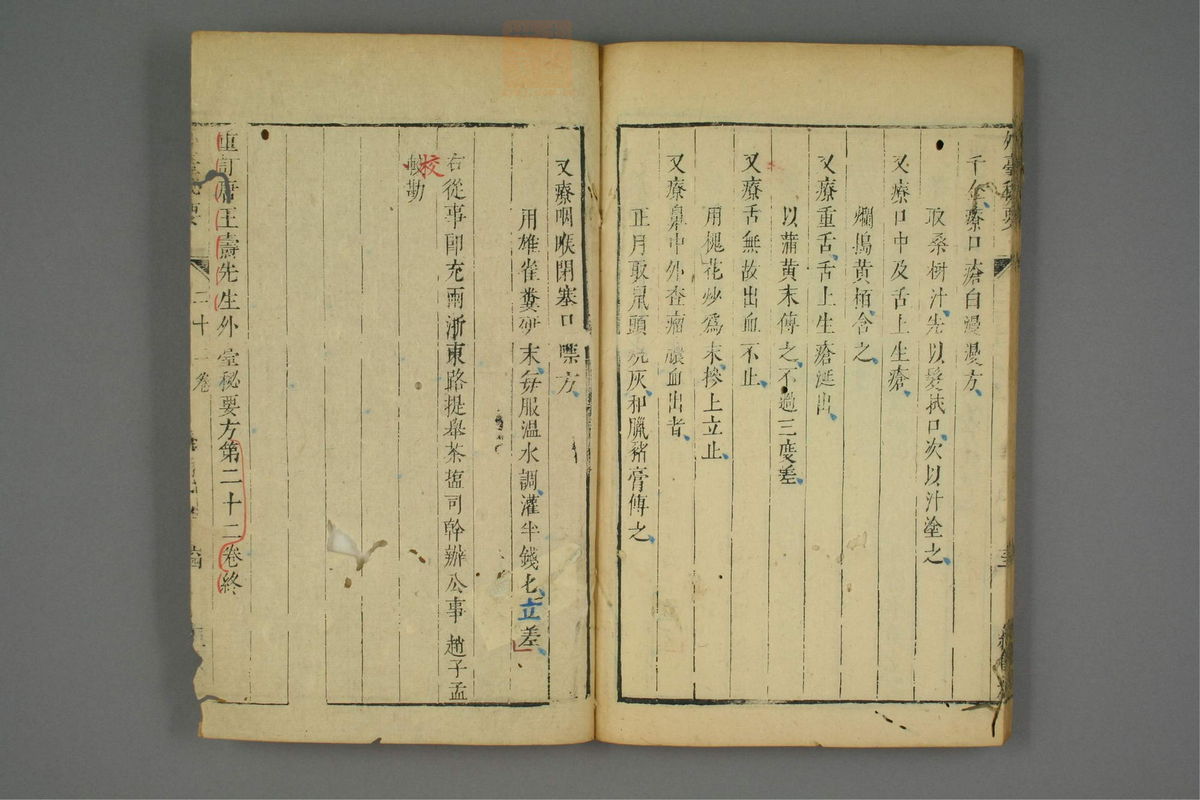 千金療口瘡白漫漫方
取桑樹汁先以髮拭口次以汁塗之
又療口中及舌上生瘡
爛搗黃栢含之
又療重舌舌上生瘡涎出
以蒲黃末傅之不過三度差
又療舌無故出血不止
用槐花炒爲末摻上立止
又療鼻中外查瘤膿血出者
正月取鼠頭燒灰和臘豬膏傅之
又療咽喉閉塞口噤方
用雄雀糞研末每服溫水調灌半錢匕立差
右從事郎充兩浙東路提舉茶塩司幹辦公事 趙子孟
校勘
重訂唐王燾先生外臺秘要方第二十二卷終
二十二卷